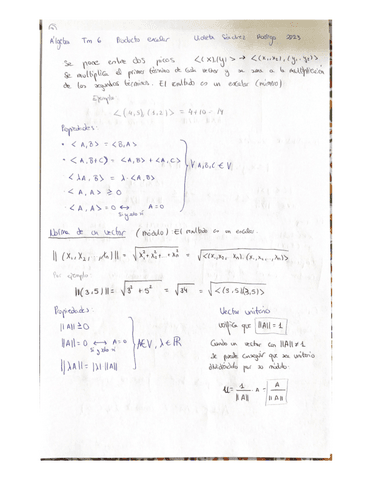 Álgebra Tm 6 Producto escalar Rodrigo 2023
Se pone entre dos picos <(x),(y)> → <(x₁,x₂),(y₁,y₂)>
Se multiplica el primer término de cada vector y se suma a la multiplicación
de los segundos términos. El resultado es un escalar (número).
Ejemplo
= 4+10 = 14
Propiedades:
· <A,B> = <B,A>
· <A,B+C> = <A,B> + <A,C>
<λA,B> = λ·<A,B>
<A,A> ≥ 0
<A,A> = 0 ↔ A=0
Si y solo si
∀A,B,C ∈ V
Norma de un vector (módulo) El resultado es un escalar.
Por ejemplo
||(3,5)|| = √3² + 5² = √34 = √<(3,5),(3,5)>
Propiedades
||A|| ≥ 0
||A|| = 0 ↔ A=0
Si y solo si
||λA|| = |λ| ||A||
A∈V, λ∈ℝ
Vector unitario
verifica que ||A|| = 1
Cuando un vector con ||A|| ≠ 1
Se puede conseguir que sea unitario
dividiéndolo por su módulo:
u = 1/||A|| · A = A/||A||